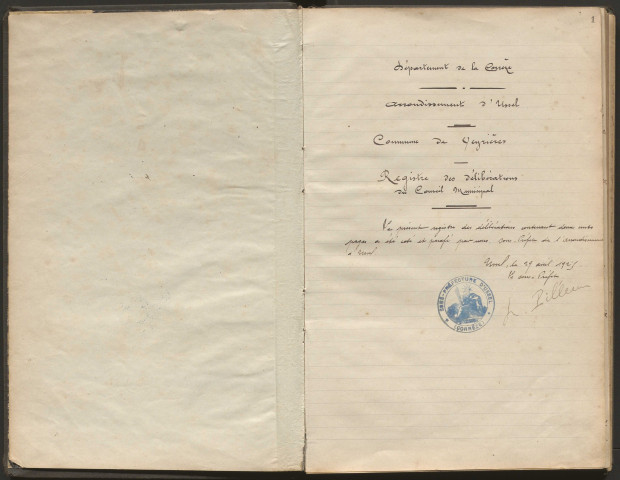 1
Département de la Corrèze
Arrondissement d'Ussel
Commune de Veyrières
Registre des délibérations
du Conseil Municipal
Le présent registre des délibérations contenant deux cents
pages a été coté et parafé par nous sous-Préfet de l'arrondissement
d'Ussel
Ussel, le 29 avril 192
Le sous-Préfet
SOUS-PREFECTURE D'USSEL
(CORREZE)